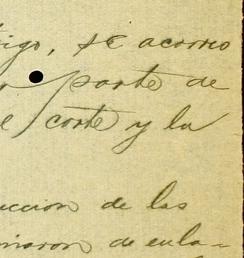 igo, se acorro
parte de
e corte y la
uccion de las
de enla=